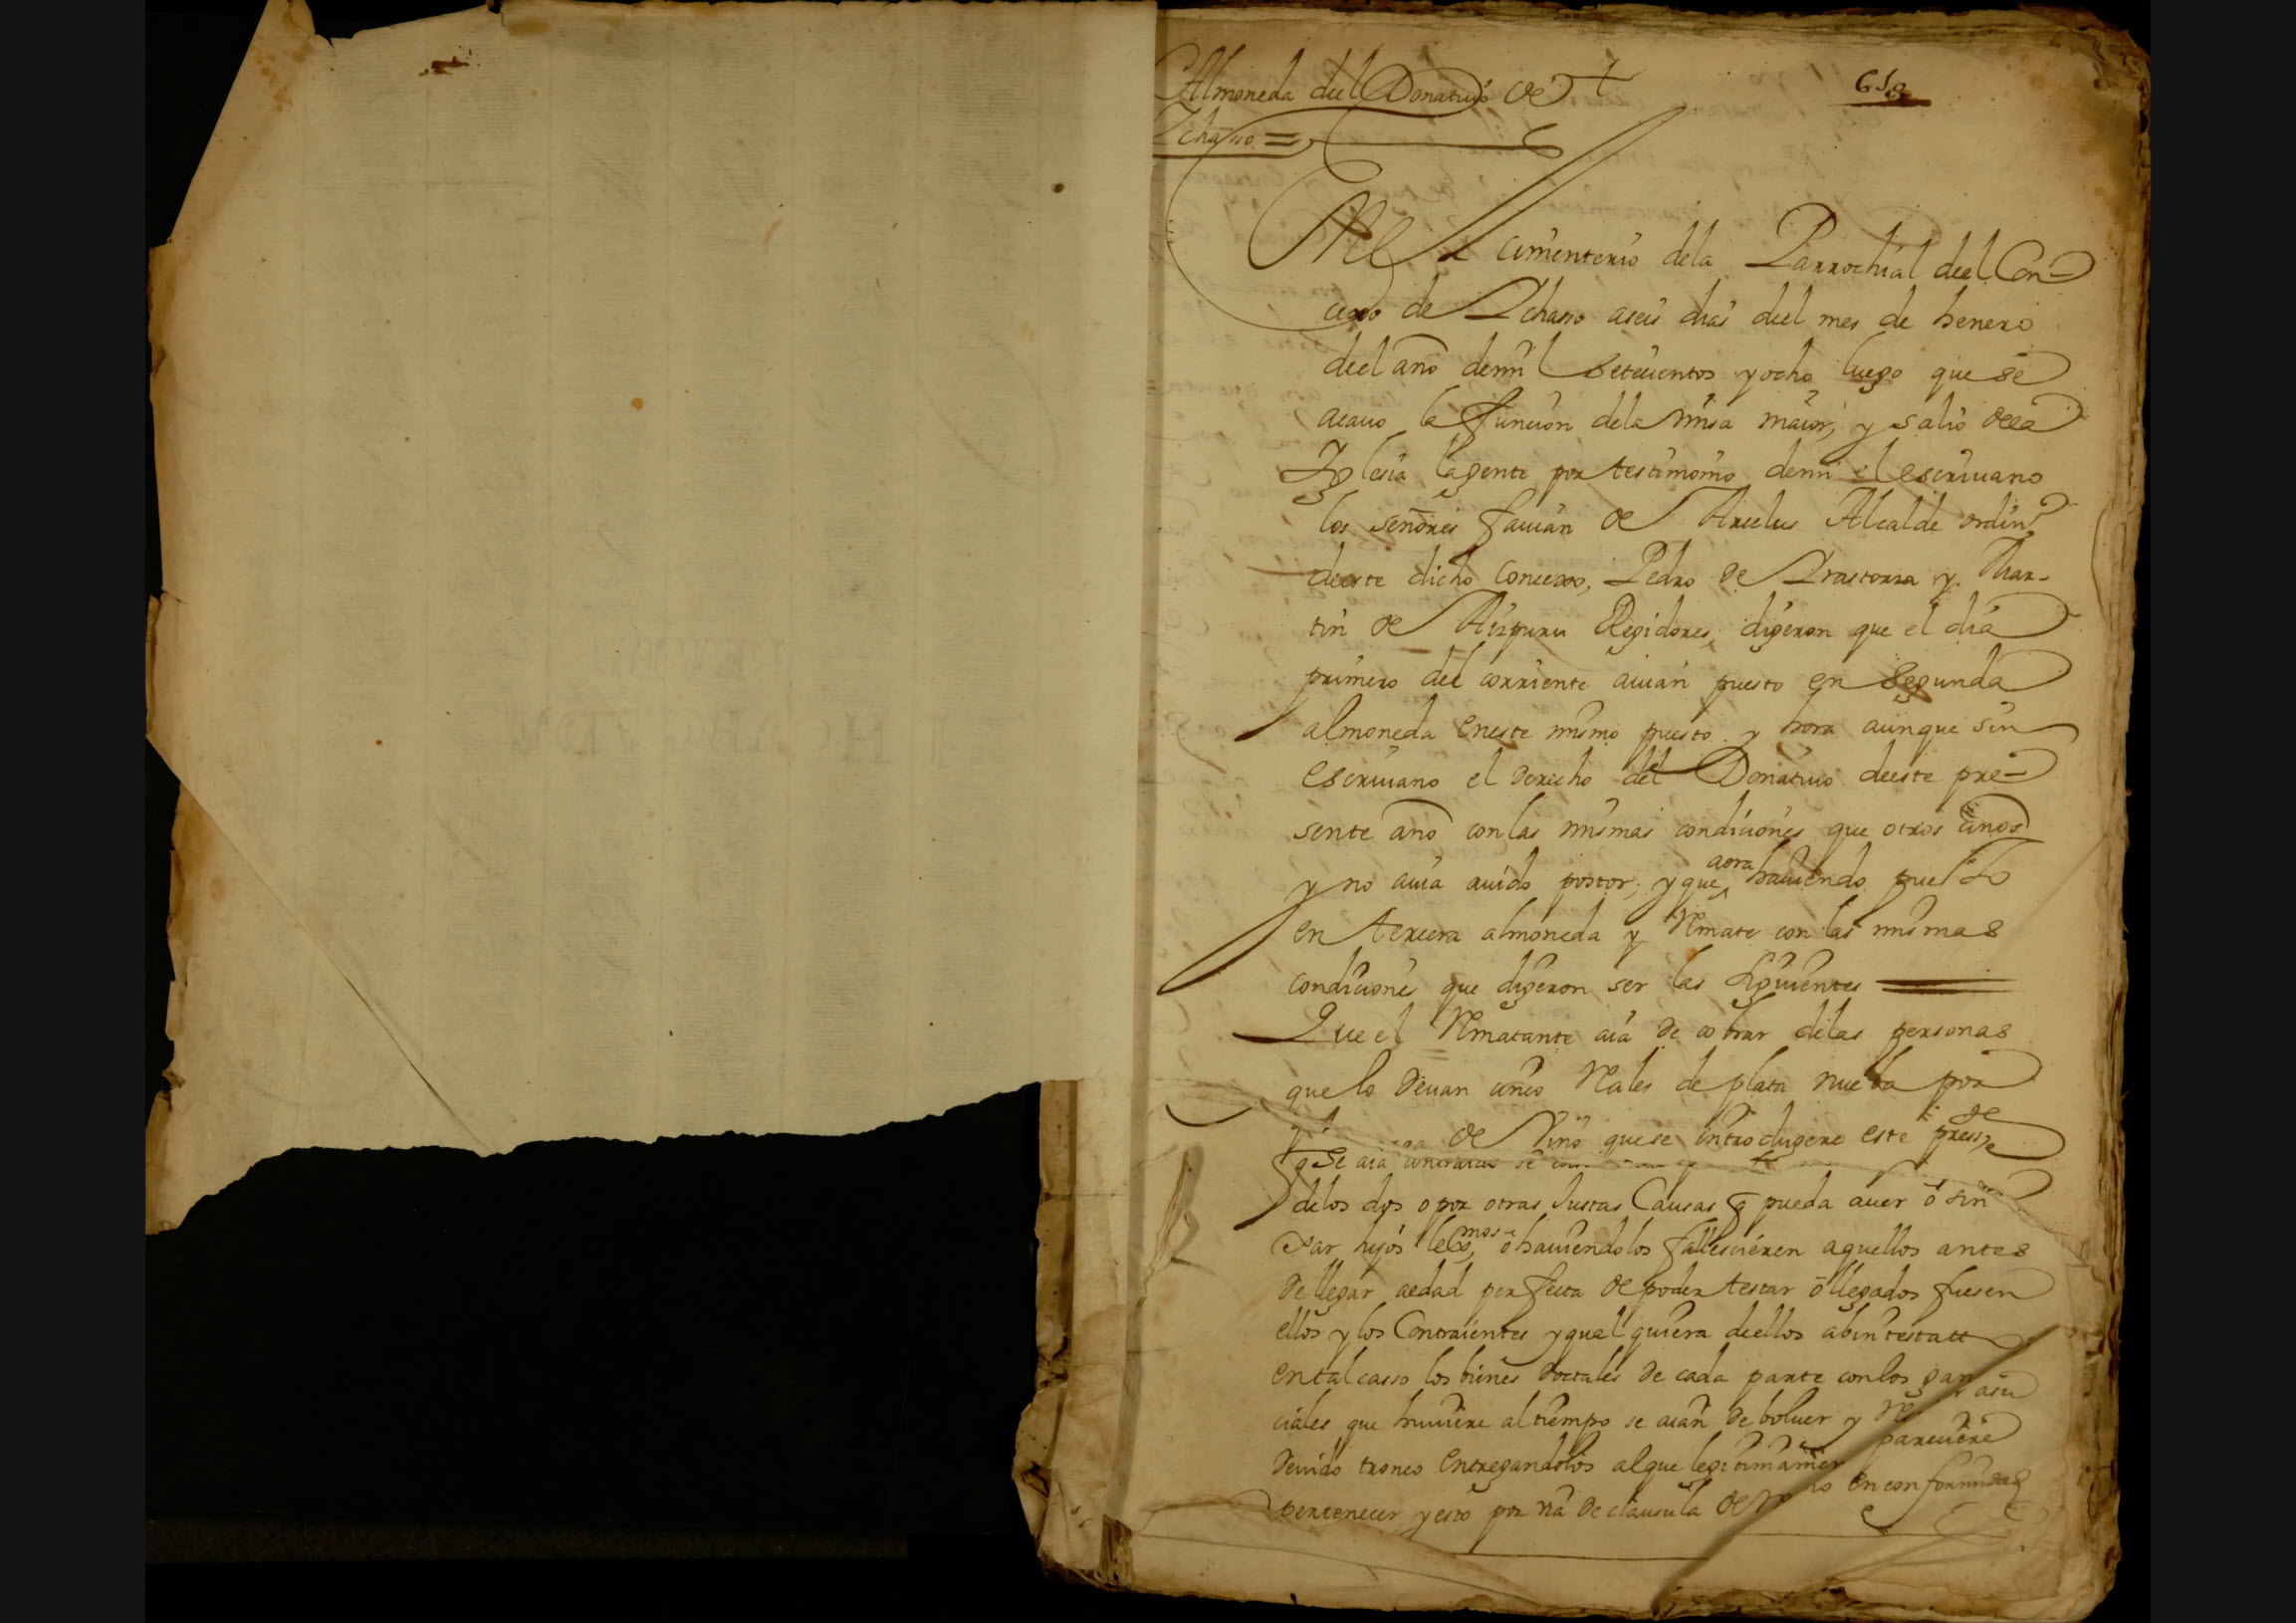 Almoneda deel Donatiuo de
Ychasso =
618
En el cimenterio dela Parrochial deel Con-
cejo de Ychasso aseis dias deel mes de henero
deel año demil setecientos y ocho luego que se
acauo la funcion dela misa maior, y salio dela
Iglesia la gente por testimonio demi el escriuano
los señores fauian de Arcelus Alcalde ordin.º
deeste dicho concexo, Pedro de Yrastorza y Mar-
tin de Aizpuru Regidores, digeron que el dia
primero del corriente auian puesto en segunda
almoneda eneste mismo puesto y hora aunque sin
escriuano el derecho del Donatiuo deeste pre-
sente año con las mismas condiciones que otros años
y no auia auido postor, y que aora hauiendo puesto
en tercera almoneda y Remate con las mismas
condiciones que digeron ser las siguientes
Que el Rematante aia de cobrar delas personas
que lo deuan cinco Reales de plata nueba por
de Vino que se introdugere este press.te
q se aia
delos dos o por otras Justas Causas q pueda auer o sin
dar hijos lexmos, o hauiendolos fallescieren aquellos antes
de llegar aedad perfecta de poder testar o llegados fuesen
ellos y los Contraientes y qual quiera deellos abintestatt
ental casso los bienes doctales de cada parte con los gan
ciales que huuiere al tiempo se aian de boluer y Re asu
deuido tronco entregandolos al que legitimamen pareciere
pertenecer y esto por via de clausula de en conformidad